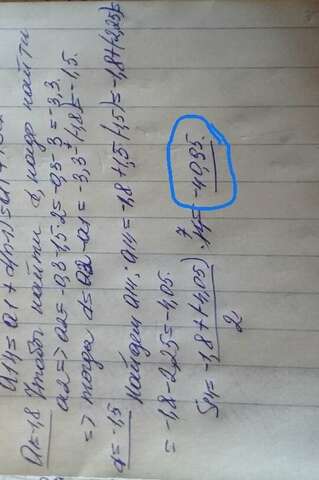 a14 = a1 + d(n-1) = a1 +
a1=-1,8 Чтобы найти d, надо найти
a2 => a2 = -0,3-1,5·2 = -0,3-3 = -3,3.
=> тогда d = a2 - a1 = -3,3-(-1,8) = -1,5.
d=-1,5 Найдем a14: a14 = -1,8+1,5(-1,5) = -1,8+(-2,25)=
= -1,8-2,25 = -4,05.
S14 = -1,8+(-4,05) / 2 · 14 7 = -40,95.